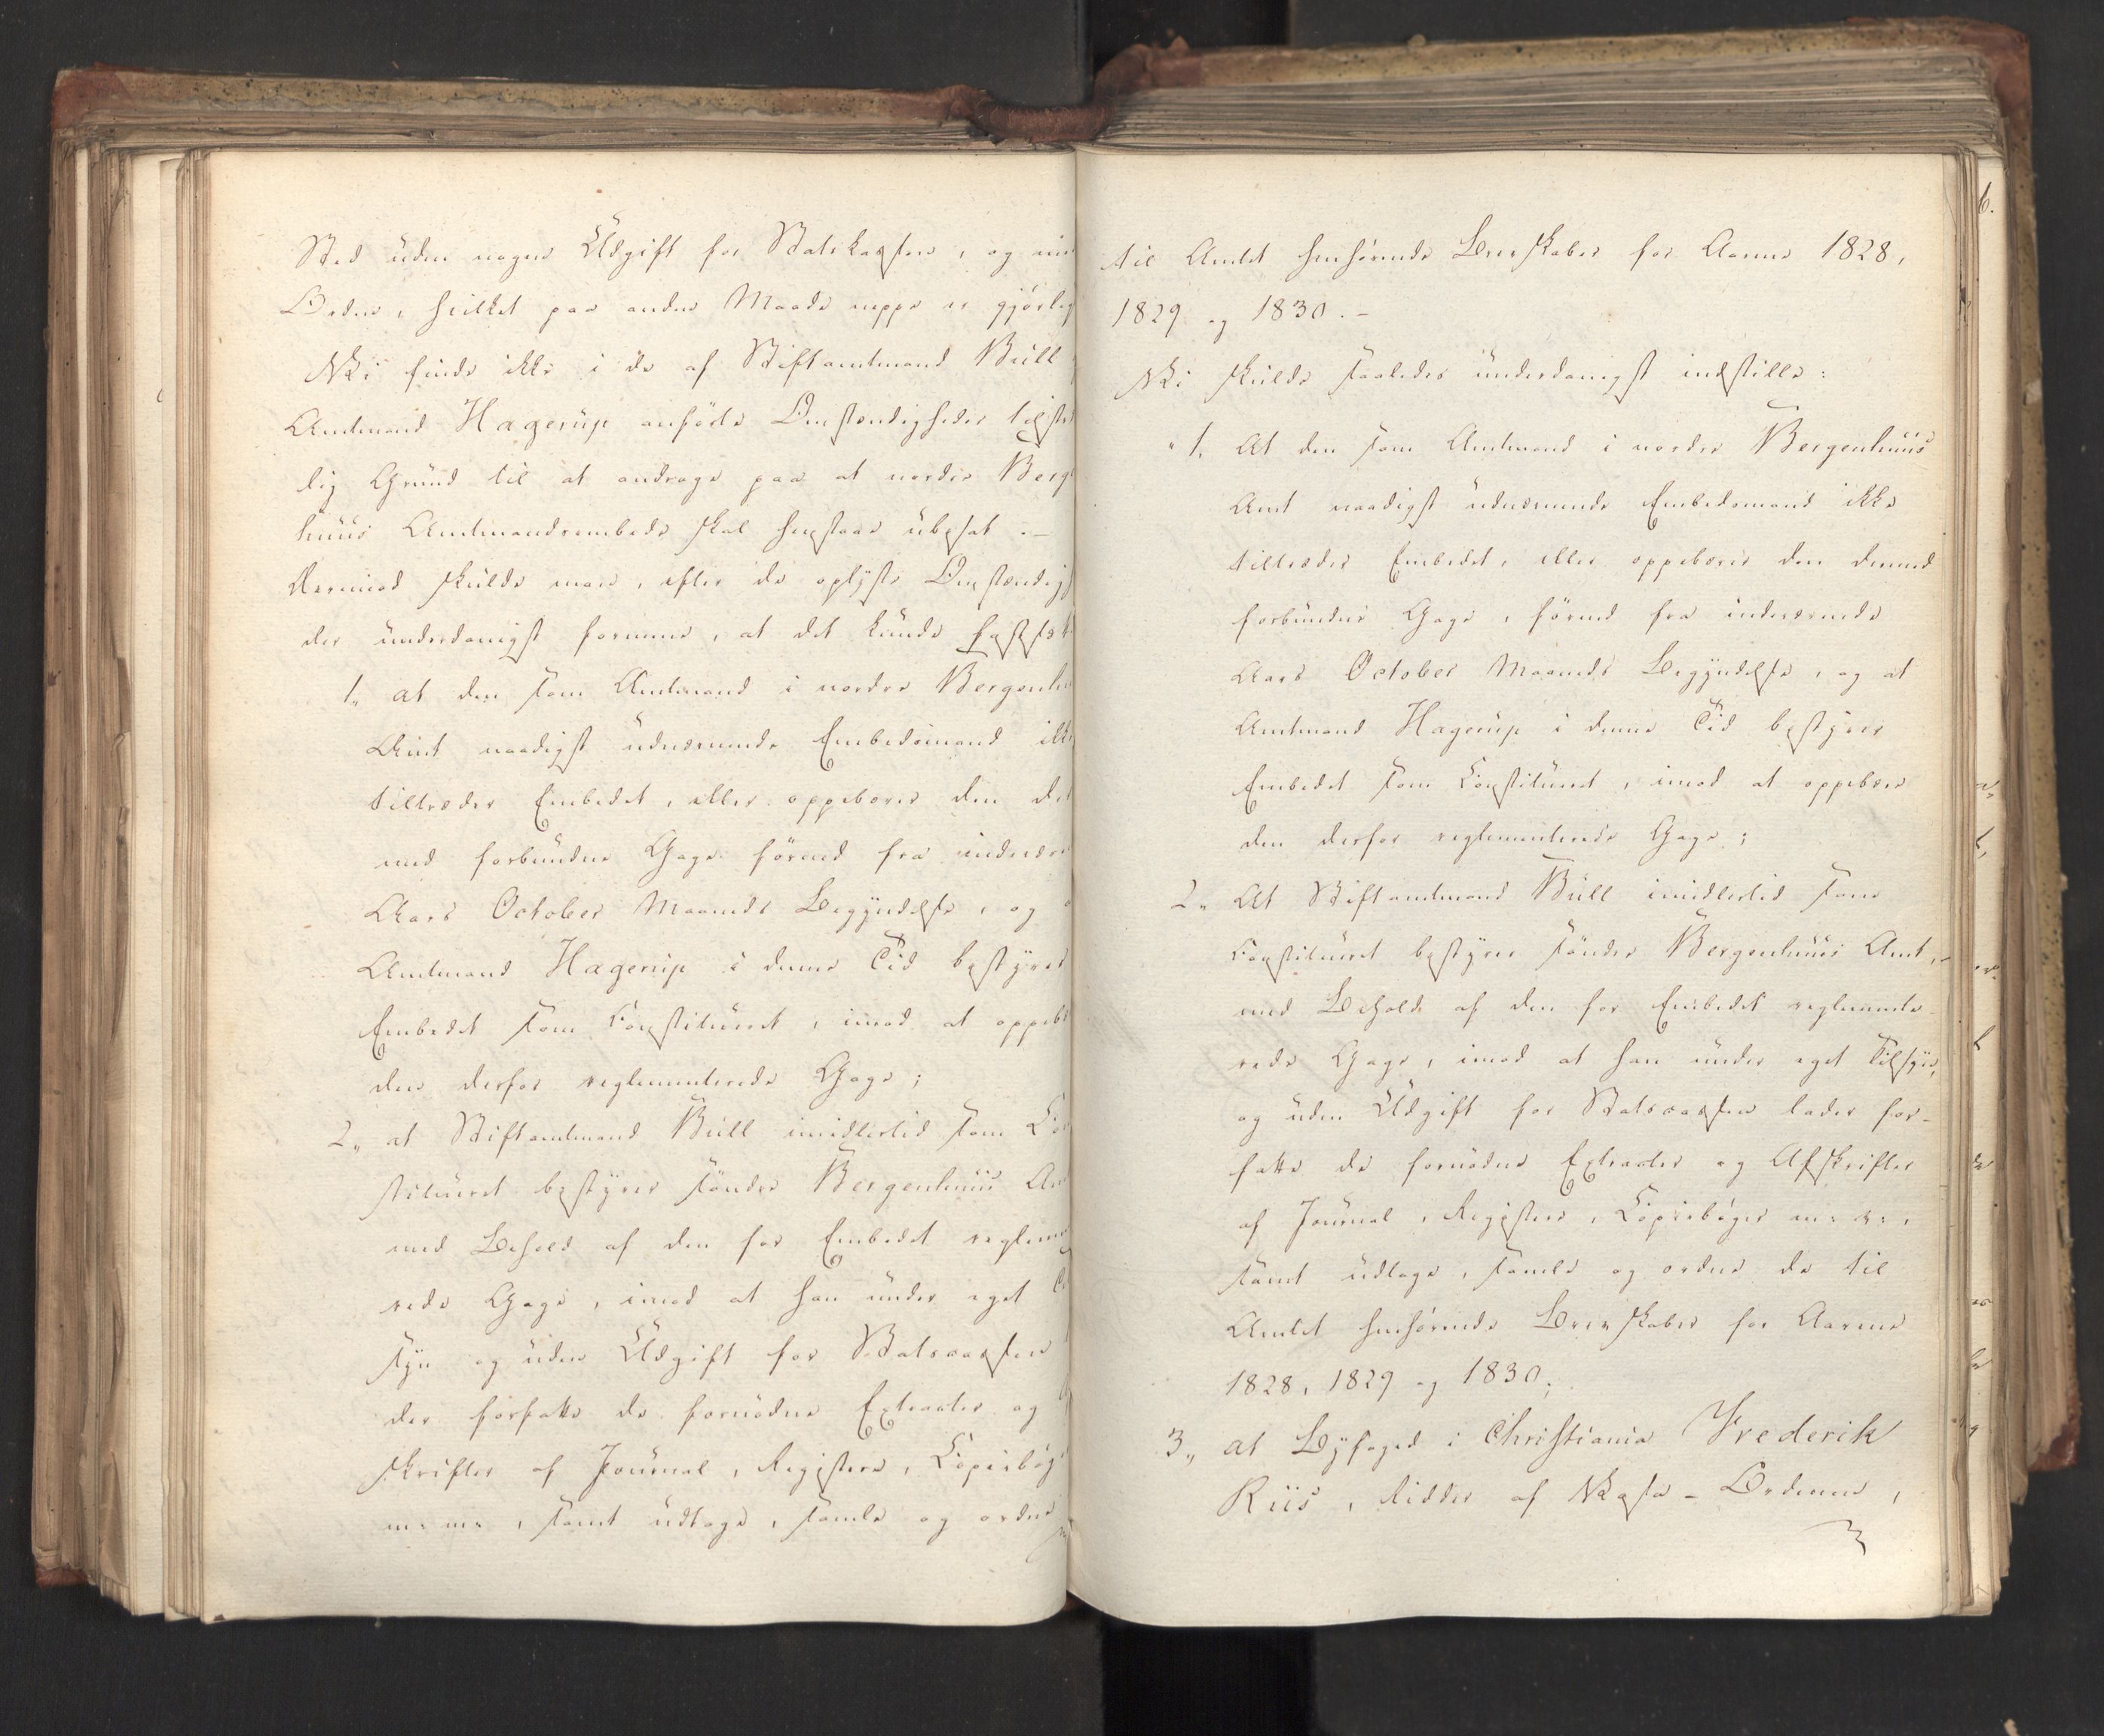 Sted uden nogen Udgift for Statskassen, og i
Orden, hvilket paa anden Maade neppe er gjørlig
Vi finde ikke i de af Stiftamtmand Bull
Amtmand Hagerup anførte Omstændigheder tilstræ
lig Grund til at andrage paa at nordre Berge
huus Amtmandsembede skal henstaae ubesat. –
Derimod skulde man, efter de oplyste Omstændighe
der underdanigst formene, at det kunde fastsæt
1, at den som Amtmand i nordre Bergenhu
Amt naadigst udnævnende Embedsmand ikke
tiltræder Embedet, eller oppebærer den der
med forbundne Gage førend fra indeværen
Aars October Maaneds Begyndelse, og a
Amtmand Hagerup i denne Tid bestyrer
Embedet som Constitueret, imod at oppebæ
den derfor reglementerede Gage;
2, at Stiftamtmand Bull imidlertid som Con
stitueret bestyrer søndre Bergenhuus Am
med Behold af den for Embedet reglemen
rede Gage, imod at han under eget Ti
syn og uden Udgift for Statscassen
der forfatte de fornødne Extracter og
skrifter af Journal, Registere, Copiebøge
m: m:, samt udtage, samle og ordne
til Amtet henhørende Brevskaber for Aarene 1828,
1829 og 1830. –
Vi skulde saaledes underdanigst indstille:
"1, At den som Amtmand i nordre Bergenhuus
Amt naadigst udnævnende Embedsmand ikke
tiltræder Embedet, eller oppebærer den dermed
forbundne Gage, førend fra indeværende
Aars October Maaneds Begyndelse, og at
Amtmand Hagerup i denne Tid bestyrer
Embedet som Constitueret, imod at oppebære
den derfor reglementerede Gage;
2, At Stiftamtmand Bull imidlertid som
Constitueret bestyrer søndre Bergenhuus Amt,
med Behold af den for Embedet reglemente-
rede Gage, imod at han under eget Tilsyn,
og uden Udgift for Statscassen lader for-
fatte de fornødne Extracter og Afskrifter
af Journal, Registere, Copiebøger m: v:,
samt udtage, samle og ordne de til
Amtet henhørende Brevskaber for Aarene
1828, 1829 og 1830;
3, at Byfoged i Christiania Frederik
Riis, Ridder af Vasa-Ordenen,